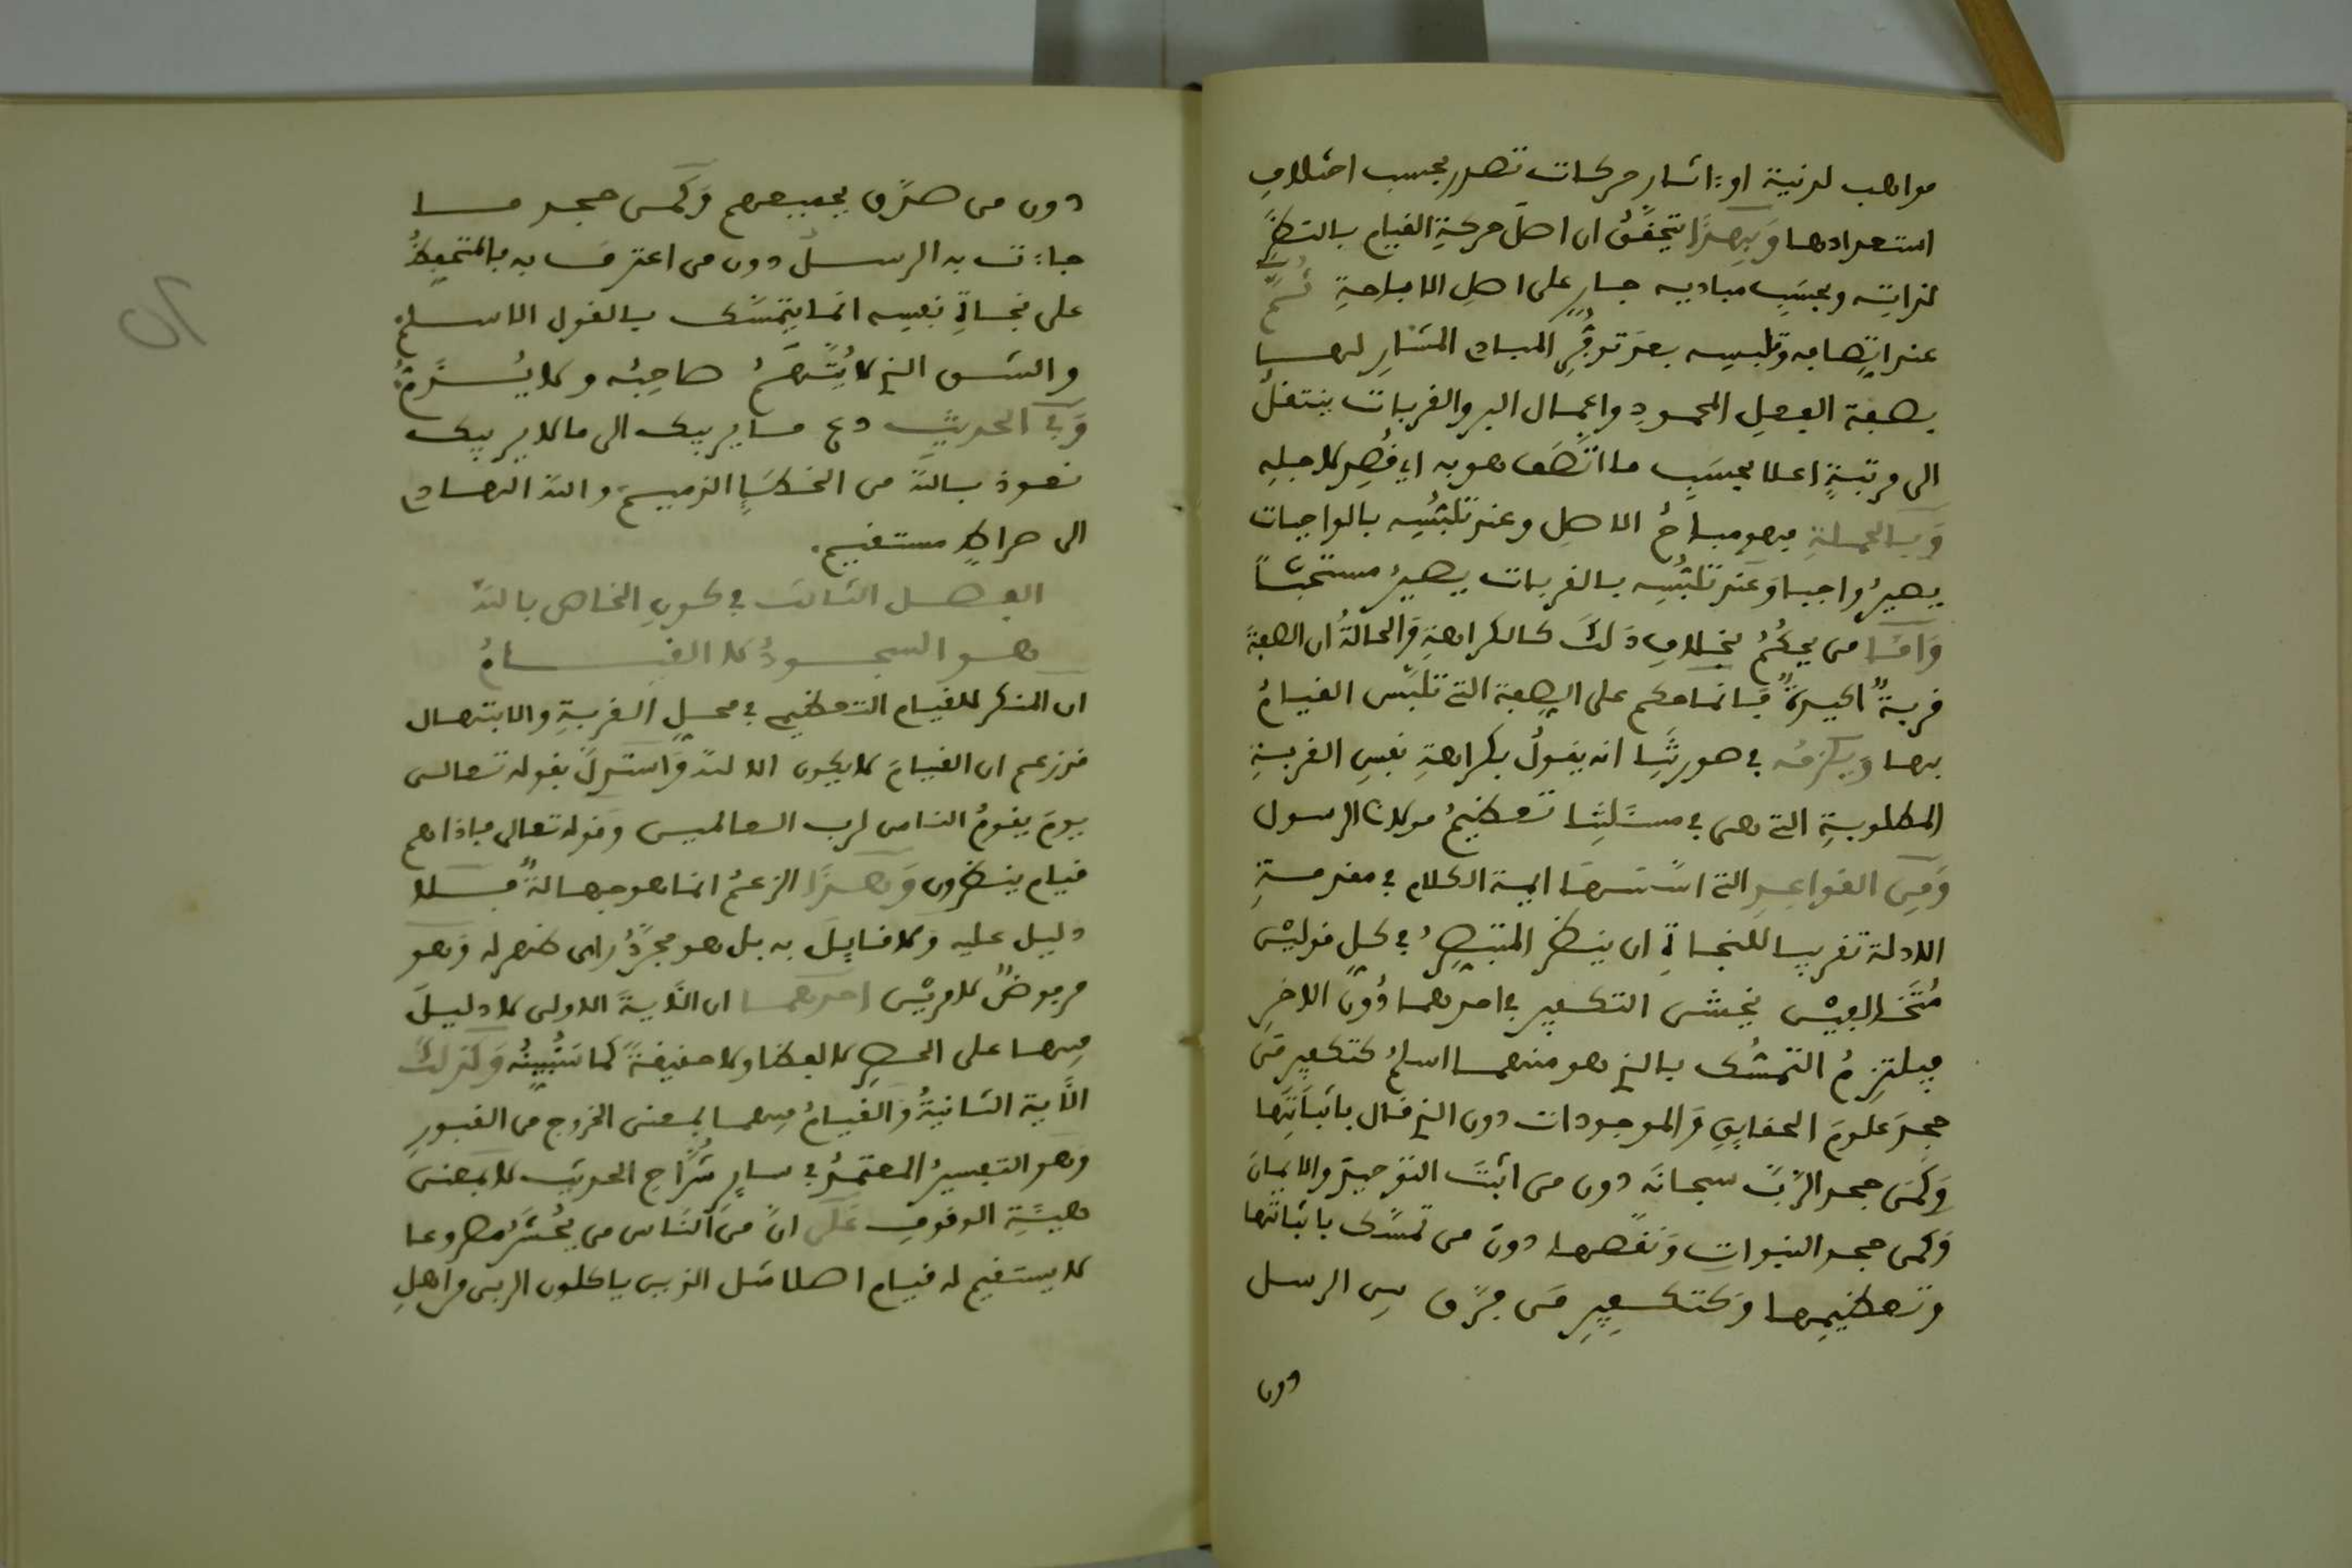 مواهب لدنية او ءاثار حركات تصدر بحسب اختلاف
استعدادها وبهذا يتحقق ان اصل حركة القيام بالنظر
لذاته وبحسب مباديه جار على اصل الاباحة ثم
عند اتصافه وتلبسه بعد توفر المبادي المشار لها
بصفة الفعل المحمود واعمال البر والقربات ينتقل
الى مرتبة اعلا بحسب ما اتصف هو به اي قصد لاجله
وبالجملة فهو مباح الاصل وعند تلبسه بالواجبات
يصير واجبا وعند تلبسه بالقربات يصير مستحبا
واما من يحكم بخلاف ذلك كالكراهة والحالة ان الصفة
قربة اكيدة فانما حكم على الصفة التي تلبس القيام
بها ويلزمه في صورتنا انه يقول بكراهة نفس القربة
المطلوبة التي هي في مسئلتنا تعظيم مولانا الرسول
ومن القواعد التي اسسها ايمة الكلام في مقدمة
الادلة تقريبا للنجاة ان ينظر المتبصر في كل قولين
متخالفين يخشى التكفير في احدهما دون الاخر
فيلتزم التمسك بالذي هو منهما اسلم كتكفير من
جحد علوم الحقايق والموجودات دون الذي قال باثباتها
وكمن جحد الرب سبحانه دون من اثبت التوحيد والايمان
وكمن جحد النبوات ونقصها دون من تمسك باثباتها
وتعظيمها وكتكفير من فرق بين الرسل
دون
دون من صدق بجميعهم وكمن جحد ما
جاءت به الرسل دون من اعترف به فالمتحفظ
على نجاة نفسه انما يتمسك بالقول الاسلم
والشق الذي لا يتهم صاحبه ولا
وفي الحديث دع ما يريبك الى ما لا يريبك
نعوذ بالله من الخطا الذميم والله الهادي
الى صراط مستقيم.
الفصل الثالث في كون الخاص بالله
هو السجود لا القيام
ان المنكر للقيام التعظيمي في محل القربة والابتهال
قد زعم ان القيام لا يكون الا لله واستدل بقوله تعالى
يوم يقوم الناس لرب العالمين وقوله تعالى فاذا هم
قيام ينظرون وهذا الزعم انما هو جهالة فلا
دليل عليه ولا قايل به بل هو مجرد راى ظهر له وهو
مرفوض لامرين احدهما ان الآية الاولى لا دليل
فيها على الحصر لا لفظا ولا حقيقة كما سنبينه وكذلك
الآية الثانية والقيام فيهما بمعنى الخروج من القبور
وهو التفسير المعتمد في ساير شراح الحديث لا بمعنى
هيئة الوقوف على ان من الناس من يحشر مصروعا
لا يستقيم له قيام اصلا مثل الذين ياكلون الربى واهل